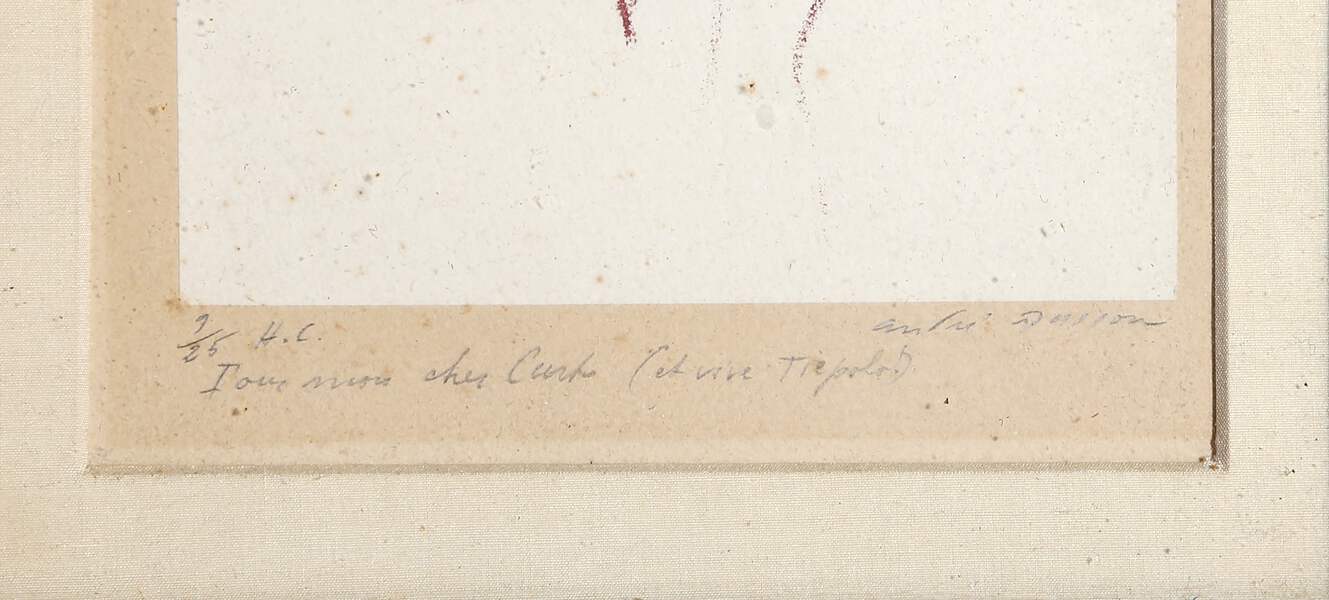 9/25 H.C.
andré Masson
Pour mon cher Curt (et vive Tiepolo!)